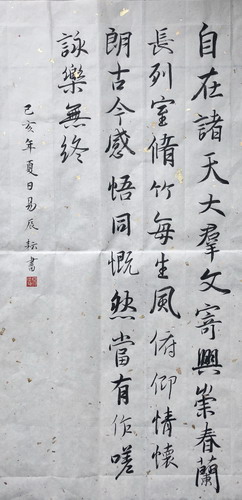 自在諸天大羣文寄興崇春蘭
長列室脩竹每生風俯仰情懷
朗古今感悟同慨然當有作嗟
詠樂無終
己亥年夏日易辰耘書